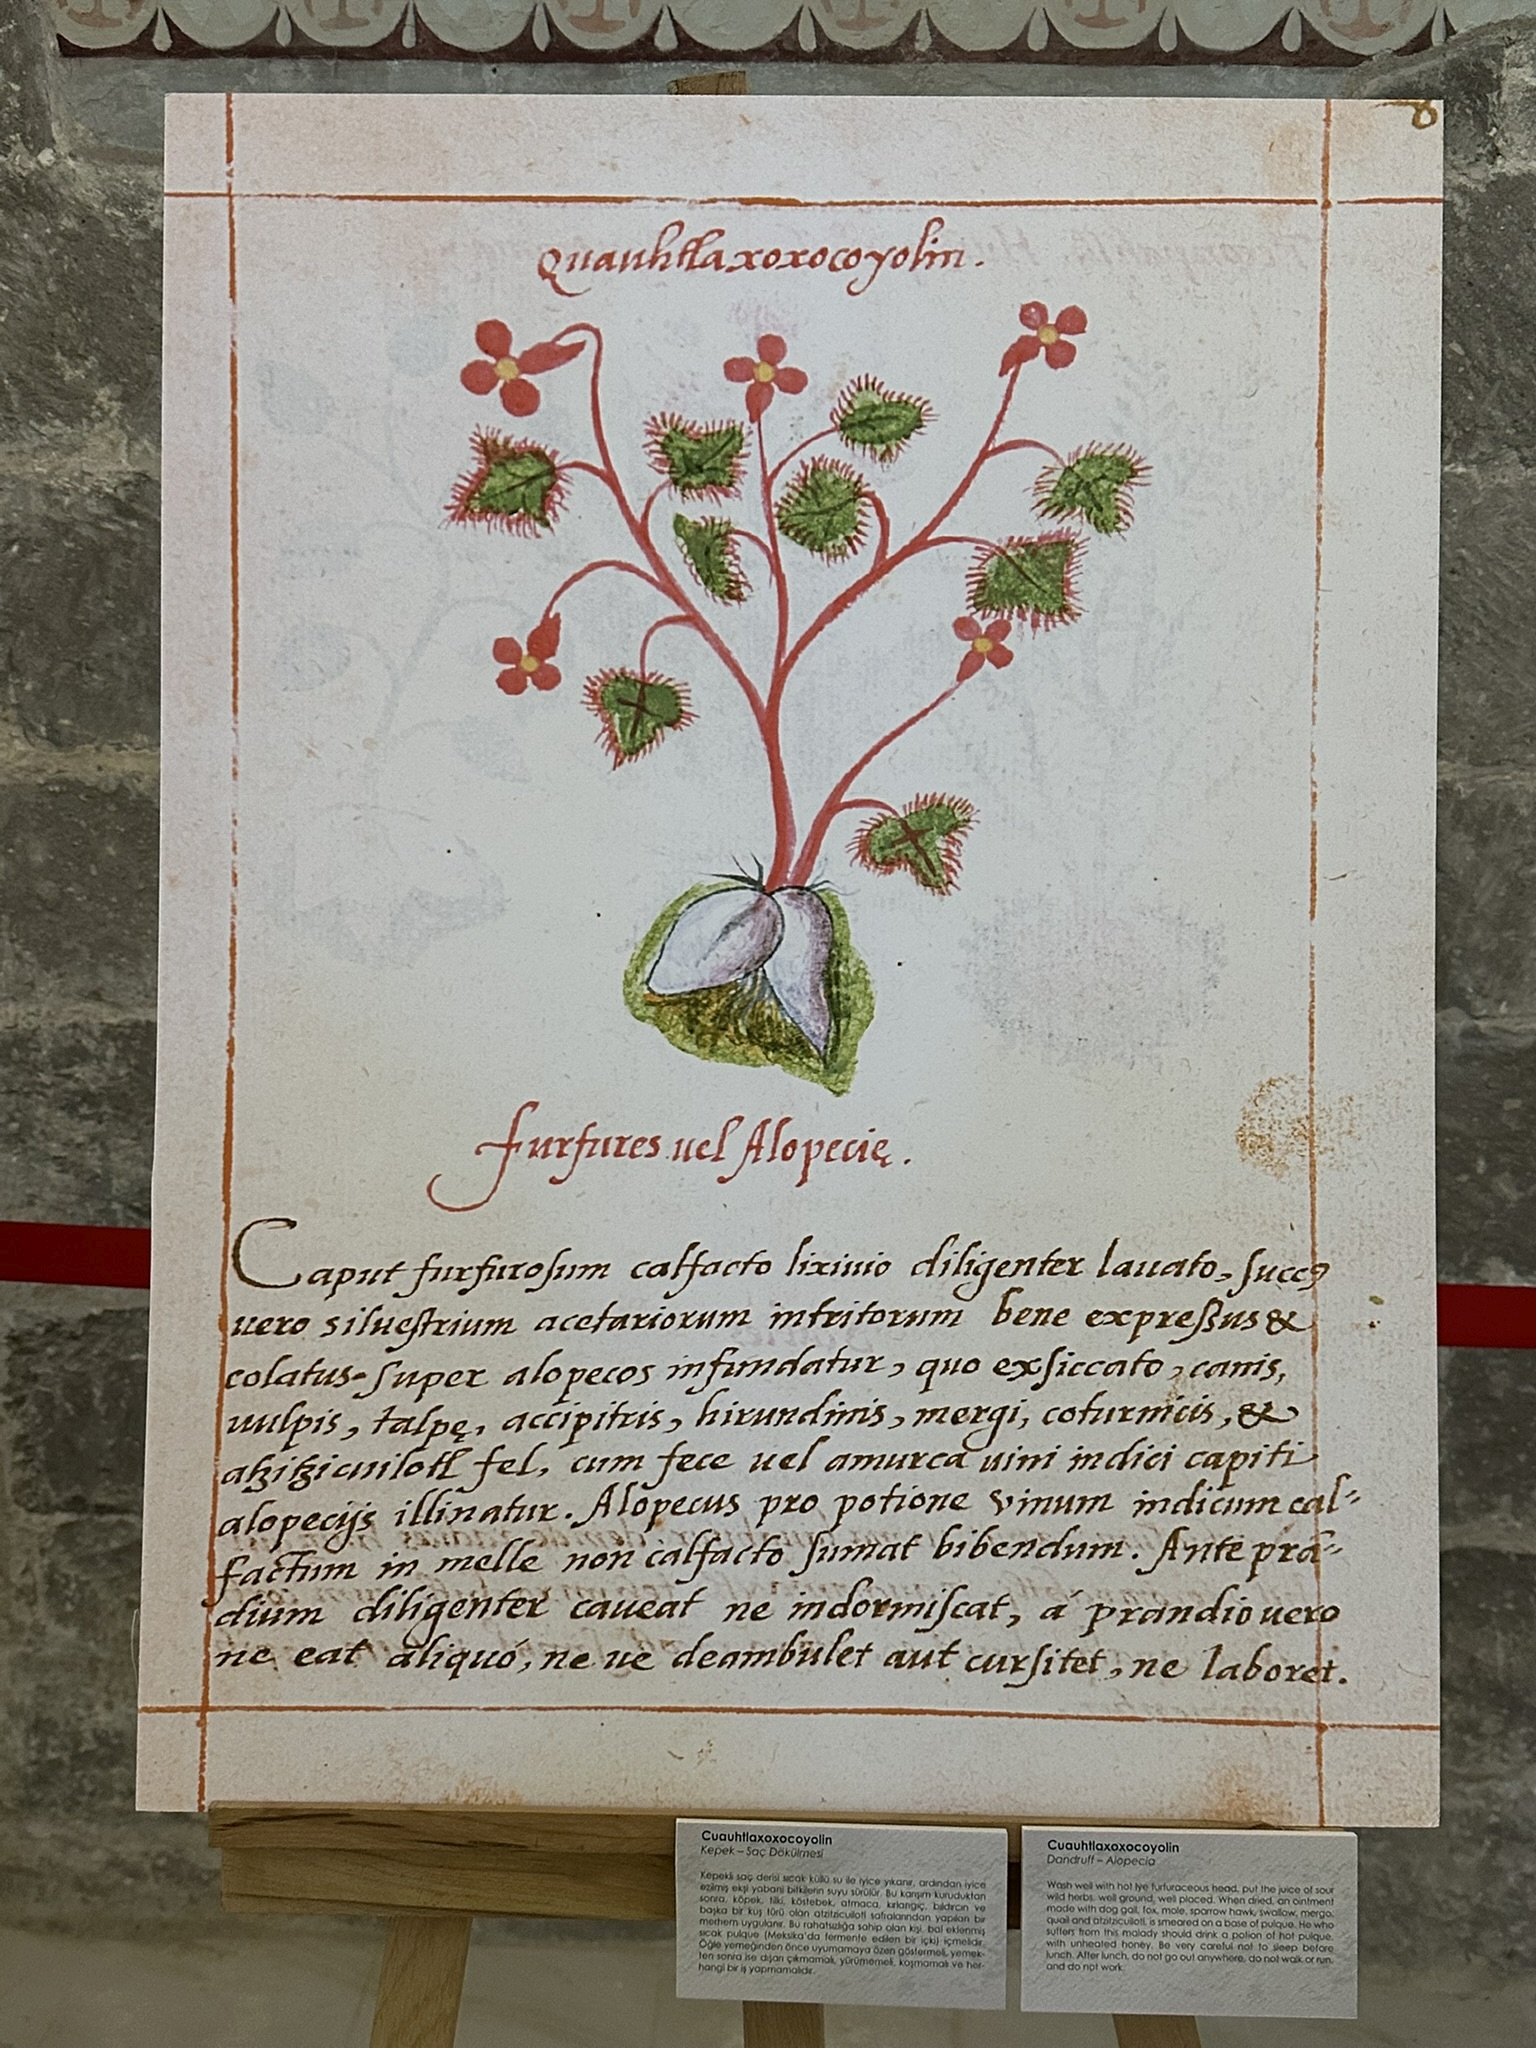 8
Quauhtlaxoxocoyolin.
Furfures uel Alopecię.
Caput furfurosum calfacto lixiuio diligenter lauato, succꝰ
uero siluestrium acetariorum intritorum bene expreßus &
colatus super alopecos infundatur, quo exsiccato, canis,
uulpis, talpę, accipitris, hirundinis, mergi, coturnicis, &
atzitzicuilotl fel, cum fece uel amurca uini indici capiti
alopecijs illinatur. Alopecus pro potione vinum indicum cal-
factum in melle non calfacto sumat bibendum. Ante prā-
dium diligenter caveat ne indormiscat, á prandio uero
ne eat aliquó, ne ve deambulet aut cursitet, ne laboret.
Cuauhtlaxoxocoyolin
Kepek – Saç Dökülmesi
Kepekli saç derisi sıcak küllü su ile iyice yıkanır, ardından iyice
ezilmiş ekşi yabani bitkilerin suyu sürülür. Bu karışım kuruduktan
sonra, köpek, tilki, köstebek, atmaca, kırlangıç, bıldırcın ve
başka bir kuş türü olan atzitzicuilotl safralarından yapılan bir
merhem uygulanır. Bu rahatsızlığa sahip olan kişi, bal eklenmiş
sıcak pulque (Meksika'da fermente edilen bir içki) içmelidir.
Öğle yemeğinden önce uyumamaya özen göstermeli, yemek-
ten sonra ise dışarı çıkmamalı, yürümemeli, koşmamalı ve her-
hangi bir iş yapmamalıdır.
Cuauhtlaxoxocoyolin
Dandruff – Alopecia
Wash well with hot lye furfuraceous head, put the juice of sour
wild herbs, well ground, well placed. When dried, an ointment
made with dog gall, fox, mole, sparrow hawk, swallow, mergo,
quail and atzitzicuilotl, is smeared on a base of pulque. He who
suffers from this malady should drink a potion of hot pulque,
with unheated honey. Be very careful not to sleep before
lunch. After lunch, do not go out anywhere, do not walk or run,
and do not work.